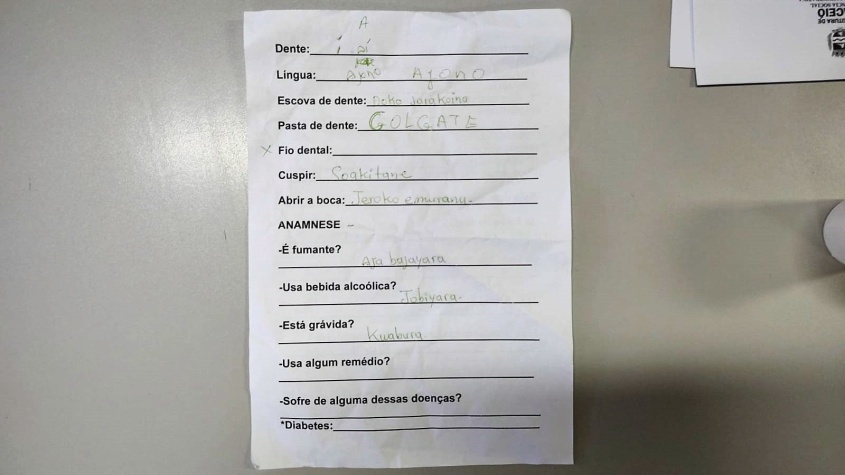 A
Dente: í
Lingua: Ajono AJONO
Escova de dente: Aoko jarakoina
Pasta de dente: GOLGATE
X Fio dental:
Cuspir: Soakitane
Abrir a boca: Jeroko emurany.
ANAMNESE -
-É fumante?
Aja bajayara
-Usa bebida alcoólica?
Jobiyara.
-Está grávida?
Kuabura
-Usa algum remédio?
-Sofre de alguma dessas doenças?
*Diabetes: